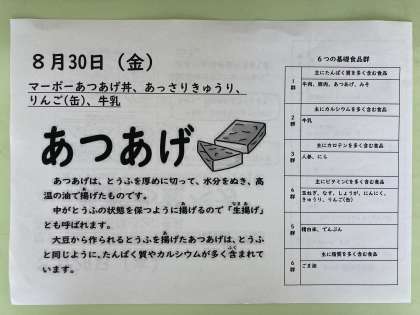 8月30日（金）
マーボーあつあげ丼、あっさりきゅうり、
りんご(缶)、牛乳
あつあげ
あつあげは、とうふを厚めに切って、水分をぬき、高
温の油で揚げたものです。
中がとうふの状態を保つように揚げるので「生揚げ」
とも呼ばれます。
大豆から作られるとうふを揚げたあつあげは、とうふ
と同じように、たんぱく質やカルシウムが多く含まれて
います。
6つの基礎食品群
主にたんぱく質を多く含む食品
1群
牛肉、豚肉、あつあげ、みそ
主にカルシウムを多く含む食品
2群
牛乳
主にカロテンを多く含む食品
3群
人参、にら
主にビタミンCを多く含む食品
玉ねぎ、なす、しょうが、にんにく、
きゅうり、りんご(缶)
5群
精白米、でんぷん
主に脂質を多く含む食品
6群
ごま油